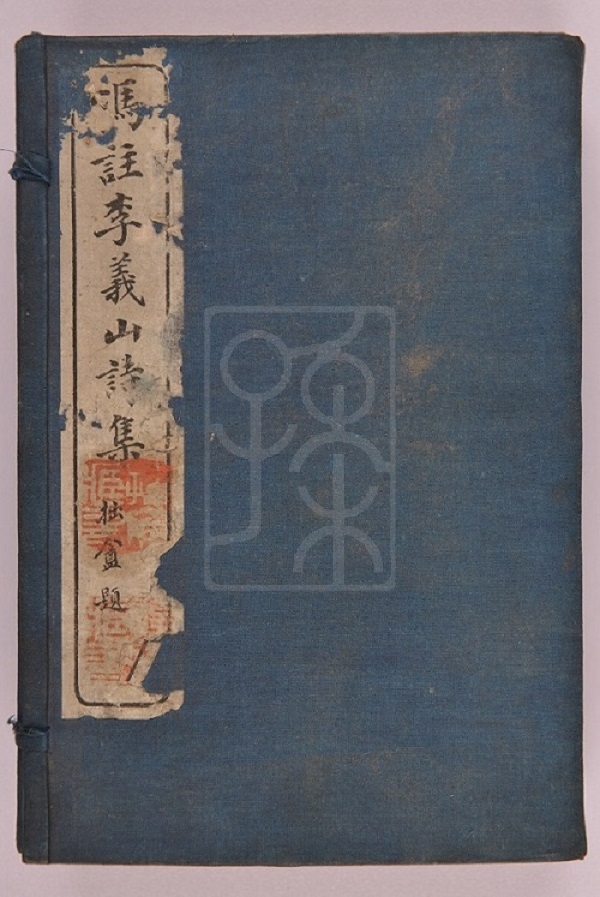 馮註李義山詩集
拙盦題